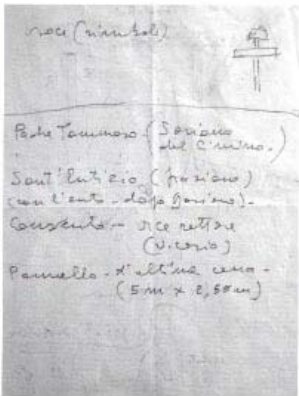 Padre Tommaso (Soriano
del Cimino.)
Sant'Eutizio (frazione)
(convento - dopo Soriano).
Convento - vice rettore
(vicario)
Pannello - l'ultima cena -
(5 m x 2,50 m)